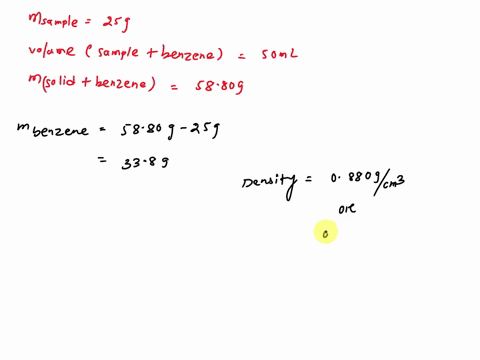 msample = 25g
volume (sample + benzene) = 50mL
m(solid + benzene) = 58.80g
mbenzene = 58.80g - 25g
= 33.8g
Density = 0.880g/cm3
or
0